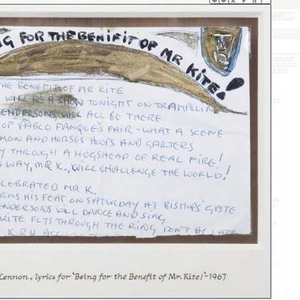 NG FOR THE BENIFIT OF MR KITE!
THE BENEFIT OF MR KITE
WILL BE A SHOW TONIGHT ON TRAMPOLIN
HENDERSONS WILL ALL BE THERE
OF PABLO FANQUES FAIR - WHAT A SCENE
MEN AND HORSES HOOPS AND GARTERS
Y THROUGH A HOGSHEAD OF REAL FIRE!
S WAY, MR K., WILL CHALLENGE THE WORLD!
CELEBRATED MR K.
RMS HIS FEAT ON SATURDAY AT BISHOPS GATE
HENDERSONS WILL DANCE AND SING,
KITE FLYS THROUGH THE RING, DON'T BE LATE
Lennon, lyrics for "Being for the Benefit of Mr. Kite!" - 1967